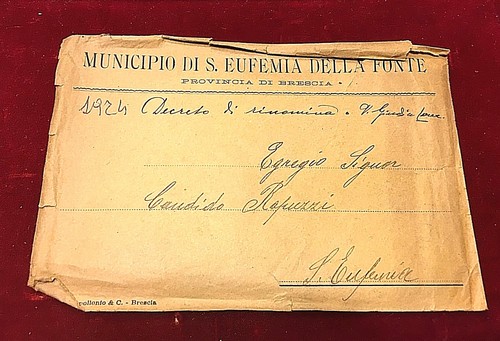 MUNICIPIO DI S. EUFEMIA DELLA FONTE
PROVINCIA DI BRESCIA
1924 Decreto di rinomina
Egregio Signor
Candido Rapuzzi
S. Eufemia
pollonio & C. - Brescia